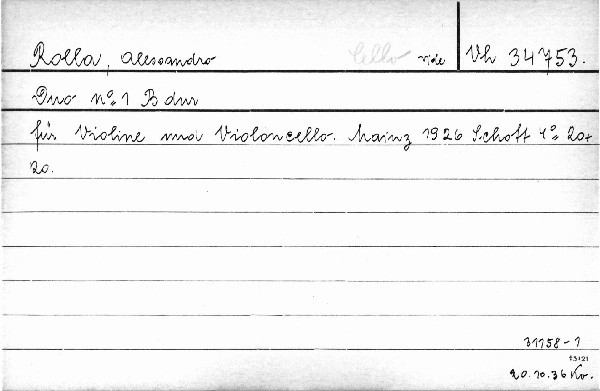 Rolla, Alessandro Cello vide Vh 34753.
Duo no 1 B dur
für Violine und Violoncello. Mainz 1926 Schott 4° 20+
20.
31158-1
20.10.36 Kv.